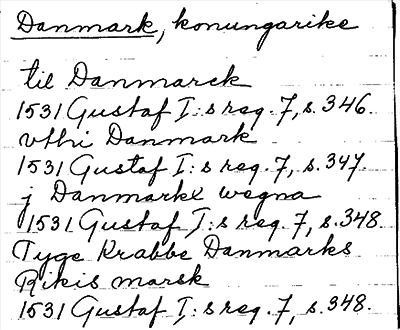 Danmark, konungarike
til Danmarck
1531 Gustaf I:s reg. 7, s. 346.
vthi Danmark
1531 Gustaf I:s reg. 7, s. 347.
j Danmarke wegna
1531 Gustaf I:s reg. 7, s. 348.
Tyge Krabbe Danmarks
Rikis marsk
1531 Gustaf I:s reg. 7, s. 348.